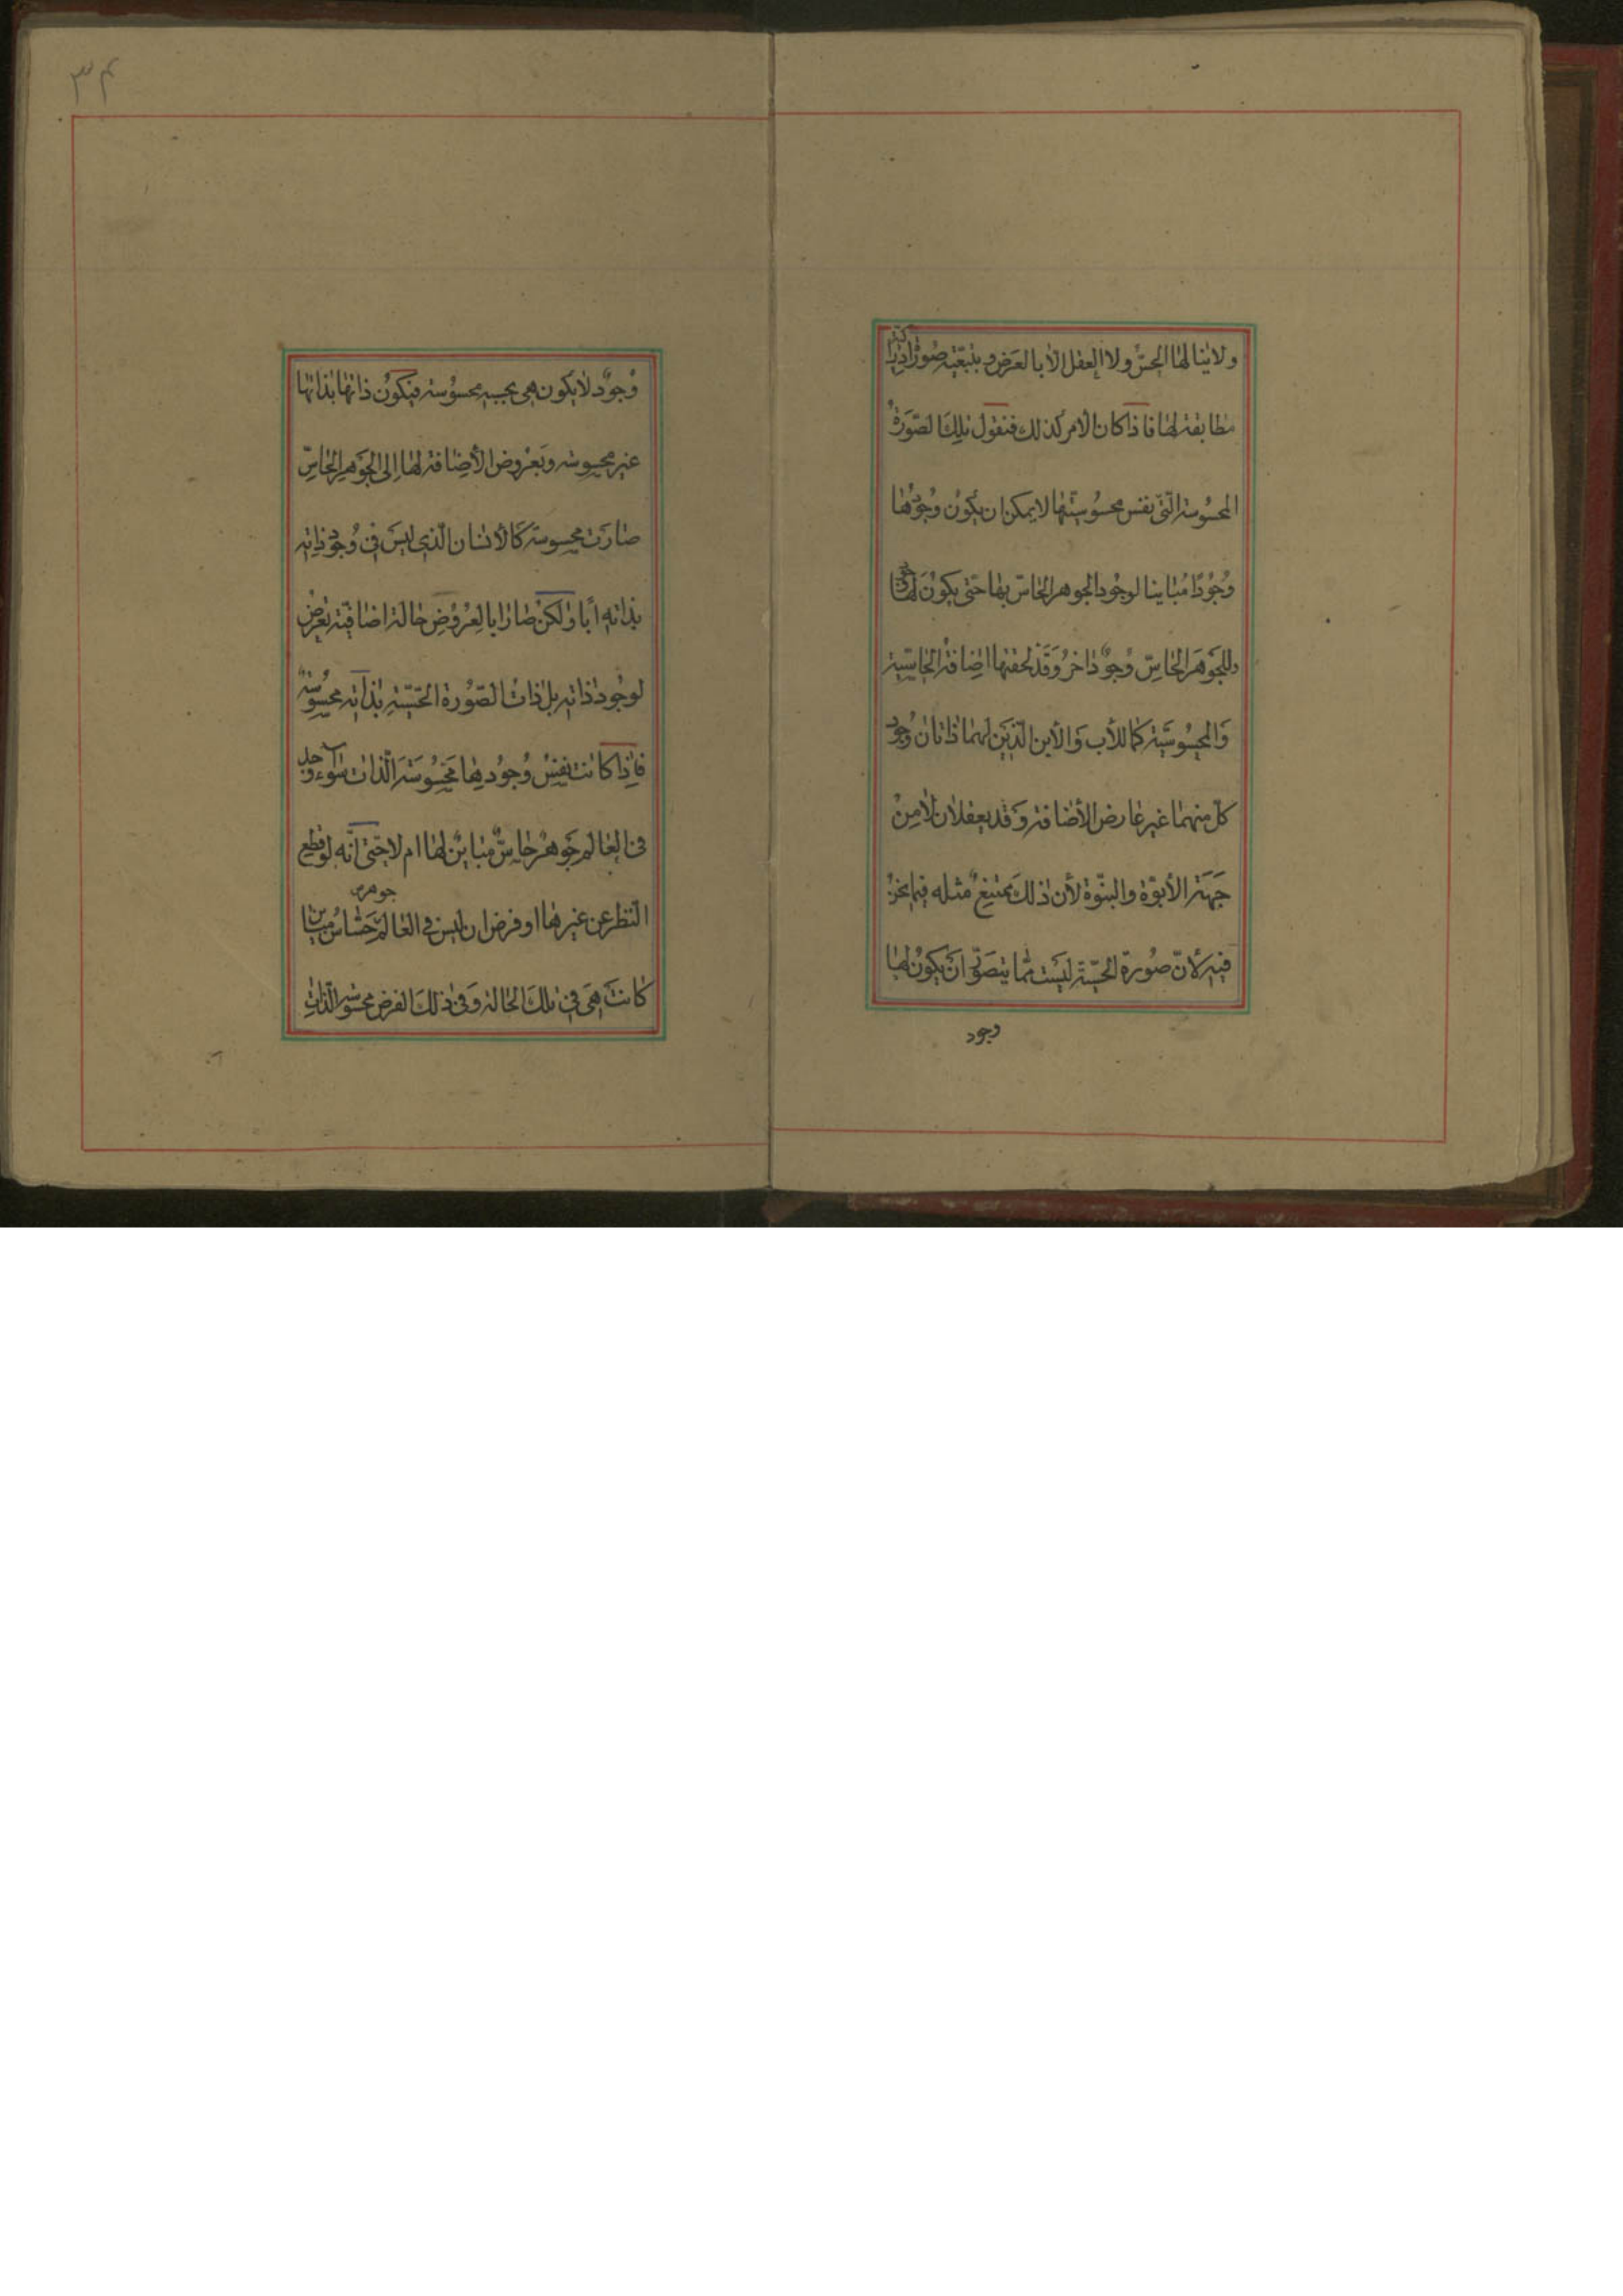 ولا ينالها الحسّ ولا العقل الّا بالعرض و بتبعّية صورة ادراكية
مطابقة لها فاذا كان الأمر كذلك فنقول تلك الصّورة
المحسوسة الّتي نفس محسوسيّتها لا يمكن ان يكون وجودها
وجودًا مباينا لوجود الجوهر الحاسّ بها حتّى يكون لها وجود
وللجوهر الحاسّ وجودٌ اخر وقد لحقتها اضافة الحاسّية
والمحسوسيّة كما للأب والأبن الّذين لهما ذاتان وجود
كلّ منهما غير عارض الأضافة وقد يعقلان لا من
جهة الأبوّة والبنوّة لأن ذلك ممتنع مثله فيما نحن
فيه لأنّ صورة الحسّية ليست ممّا يتصوّر ان يكون لها
وجود
٣٤
وجودٌ لا يكون هي بحسبه محسوسة فيكون ذاتها بذاتها
غير محسوسة وبعروض الأضافة لها الى الجوهر الحاسّ
صارت محسوسة كالأنسان الّذي ليس في وجود ذاته
بذاته أبا ولكن صار ابا لعروض حالة اضافيّة تعرض
لوجود ذاته بل ذات الصّورة الحسّيّة بذاته محسوسة
فاذا كانت نفس وجودها محسوسة الّذات سواء وجد
في العالم جوهرٌ حاسٌّ مباينٌ لها ام لا حتّى انّه لو قطع
النّظر عن غيرها او فرض ان ليس في العالم جوهرٌ حسّاسٌ مباين
كانت هي في تلك الحالة وفي ذلك الفرض محسوسة الّذات